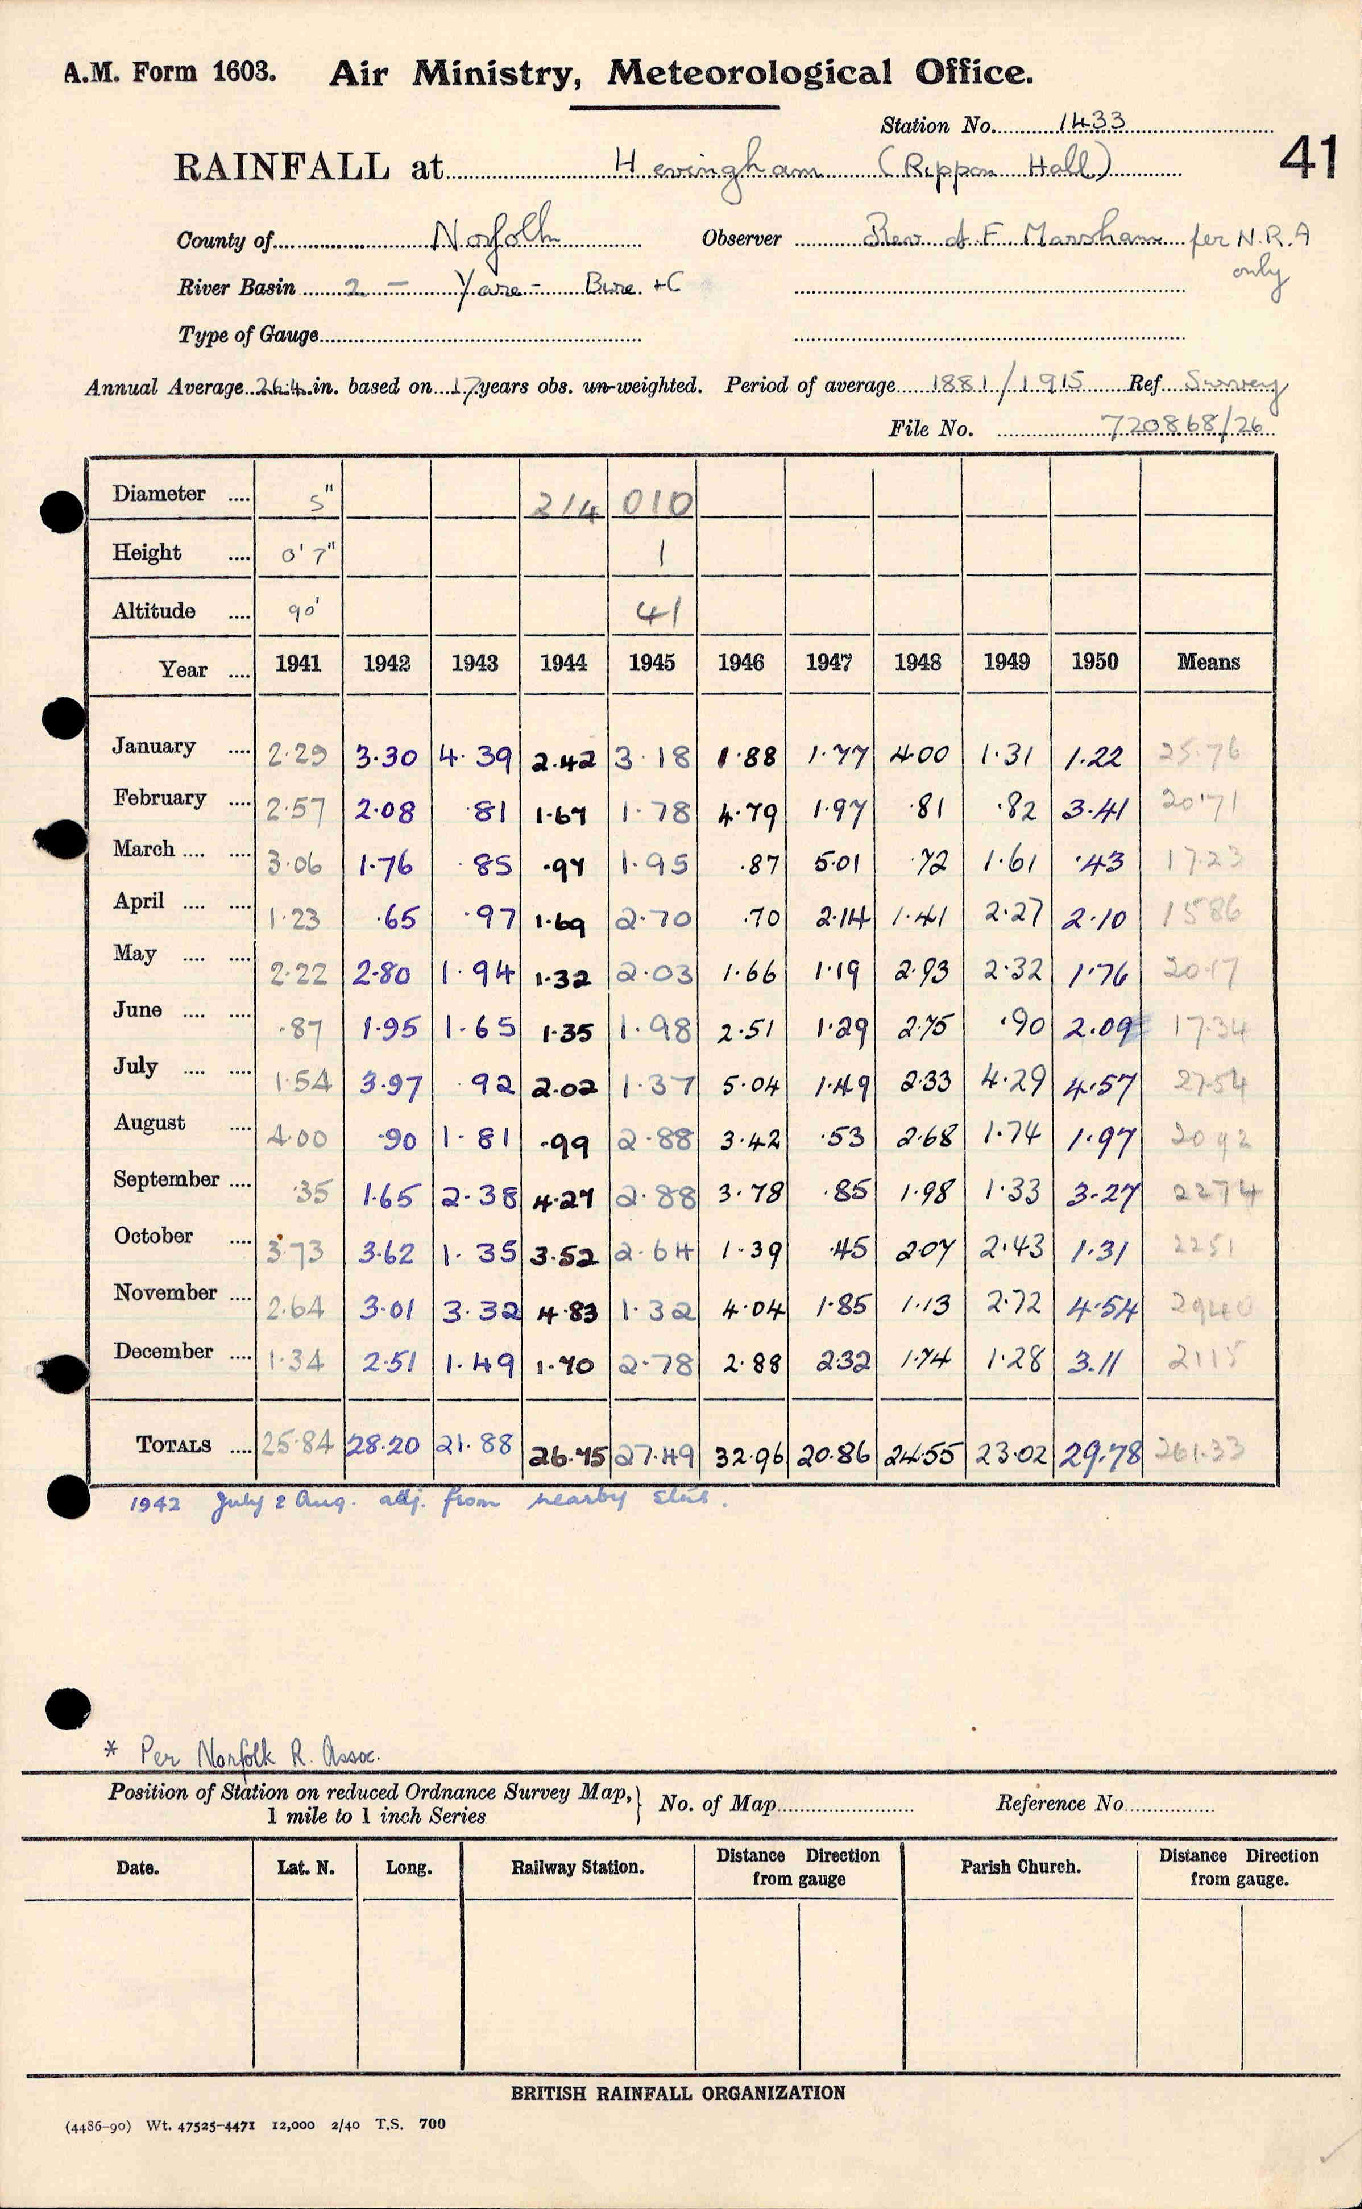 A.M. Form 1603. Air Ministry, Meteorological Office.
Station No. 1433
41
RAINFALL at Hevingham (Rippon Hall)
County of Norfolk Observer Rev. A F Marsham per N.R.A only
River Basin 2 - Yare - Bure +C
Type of Gauge
Annual Average 26.4 in. based on 17 years obs. un-weighted. Period of average 1881/1915 Ref Survey
File No. 720868/26
Diameter .... 5" 214 010
Height .... 0' 7" 1
Altitude .... 90' 41
Year .... 1941 1942 1943 1944 1945 1946 1947 1948 1949 1950 Means
January .... 2.29 3.30 4.39 2.42 3.18 1.88 1.77 4.00 1.31 1.22 25.76
February .... 2.57 2.08 .81 1.67 1.78 4.79 1.97 .81 .82 3.41 20.71
March .... .... 3.06 1.76 .85 .97 1.95 .87 5.01 .72 1.61 .43 17.23
April .... .... 1.23 .65 .97 1.69 2.70 .70 2.14 1.41 2.27 2.10 15.86
May .... .... 2.22 2.80 1.94 1.32 2.03 1.66 1.19 2.93 2.32 1.76 20.17
June .... .... .87 1.95 1.65 1.35 1.98 2.51 1.29 2.75 .90 2.09 17.34
July .... .... 1.54 3.97 .92 2.02 1.37 5.04 1.49 2.33 4.29 4.57 27.54
August .... 4.00 .90 1.81 .99 2.88 3.42 .53 2.68 1.74 1.97 20 92
September .... .35 1.65 2.38 4.27 2.88 3.78 .85 1.98 1.33 3.27 22 74
October .... 3.73 3.62 1.35 3.52 2.64 1.39 .45 2.07 2.43 1.31 22 51
November .... 2.64 3.01 3.32 4.83 1.32 4.04 1.85 1.13 2.72 4.54 29 40
December .... 1.34 2.51 1.49 1.70 2.78 2.88 2.32 1.74 1.28 3.11 21 15
TOTALS .... 25.84 28.20 21.88 26.75 27.49 32.96 20.86 24.55 23.02 29.78 261.33
1942 July & Aug. adj. from nearby stns.
* Per Norfolk R. Assoc.
Position of Station on reduced Ordnance Survey Map, 1 mile to 1 inch Series } No. of Map Reference No.
Date. Lat. N. Long. Railway Station. Distance Direction from gauge Parish Church. Distance Direction from gauge.
BRITISH RAINFALL ORGANIZATION
(4486-90) Wt. 47525-4471 12,000 2/40 T.S. 700